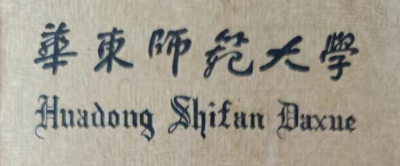 華東師范大學
Huadong Shifan Daxue